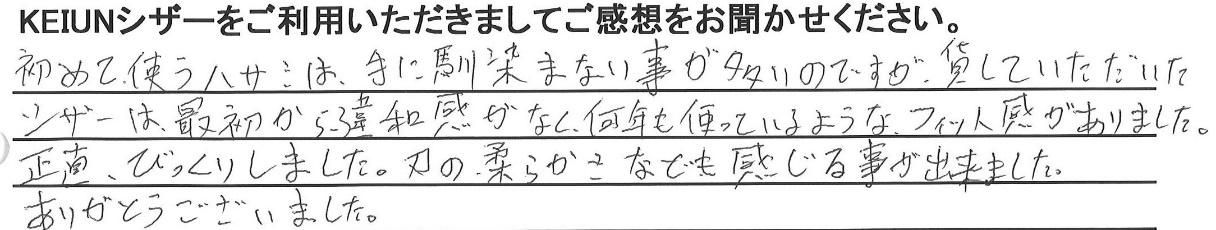 KEIUNシザーをご利用いただきましてご感想をお聞かせください。
初めて使うハサミは、手に馴染まない事が多いのですが、貸していただいた
シザーは、最初から違和感がなく、何年も使っているような、フィット感がありました。
正直、びっくりしました。刃の柔らかさなども感じる事が出来ました。
ありがとうございました。